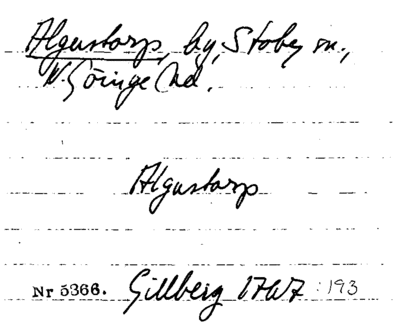 Algustorp, by, Stoby sn.,
V Göinge hd.
Algustorp
Nr 5366. Gillberg 1767 : 193